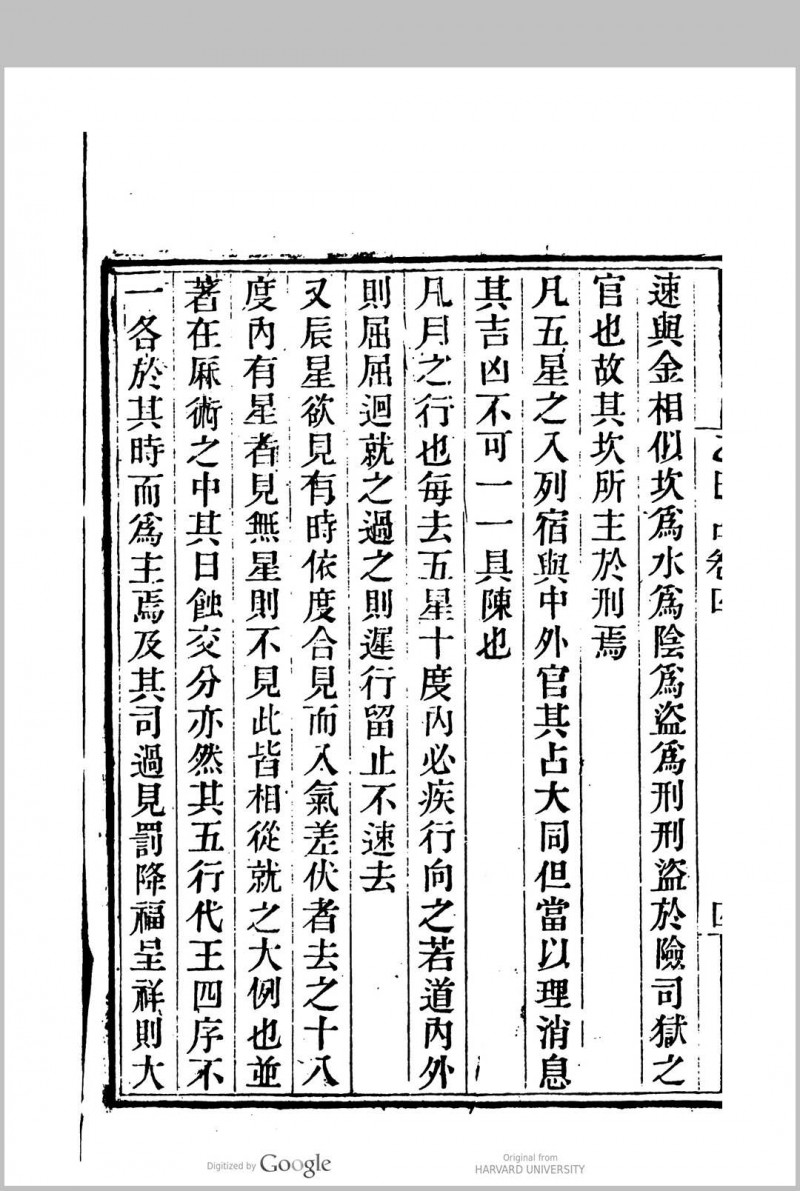 速與金相似坎爲水爲陰爲盜爲刑刑盜於險司獄之
官也故其坎所主於刑焉
凡五星之入列宿與中外官其占大同但當以理消息
其吉凶不可一一具陳也
凡月之行也每去五星十度內必疾行向之若道內外
則屈屈迴就之過之則遲行留止不速去
又辰星欲見有時依度合見而入氣差伏者去之十八
度內有星者見無星則不見此皆相從就之大例也並
著在厤術之中其日蝕交分亦然其五行代王四序不
一各於其時而爲主焉及其司過見罰降福呈祥則大
Digitized by Google
Original from
HARVARD UNIVERSITY